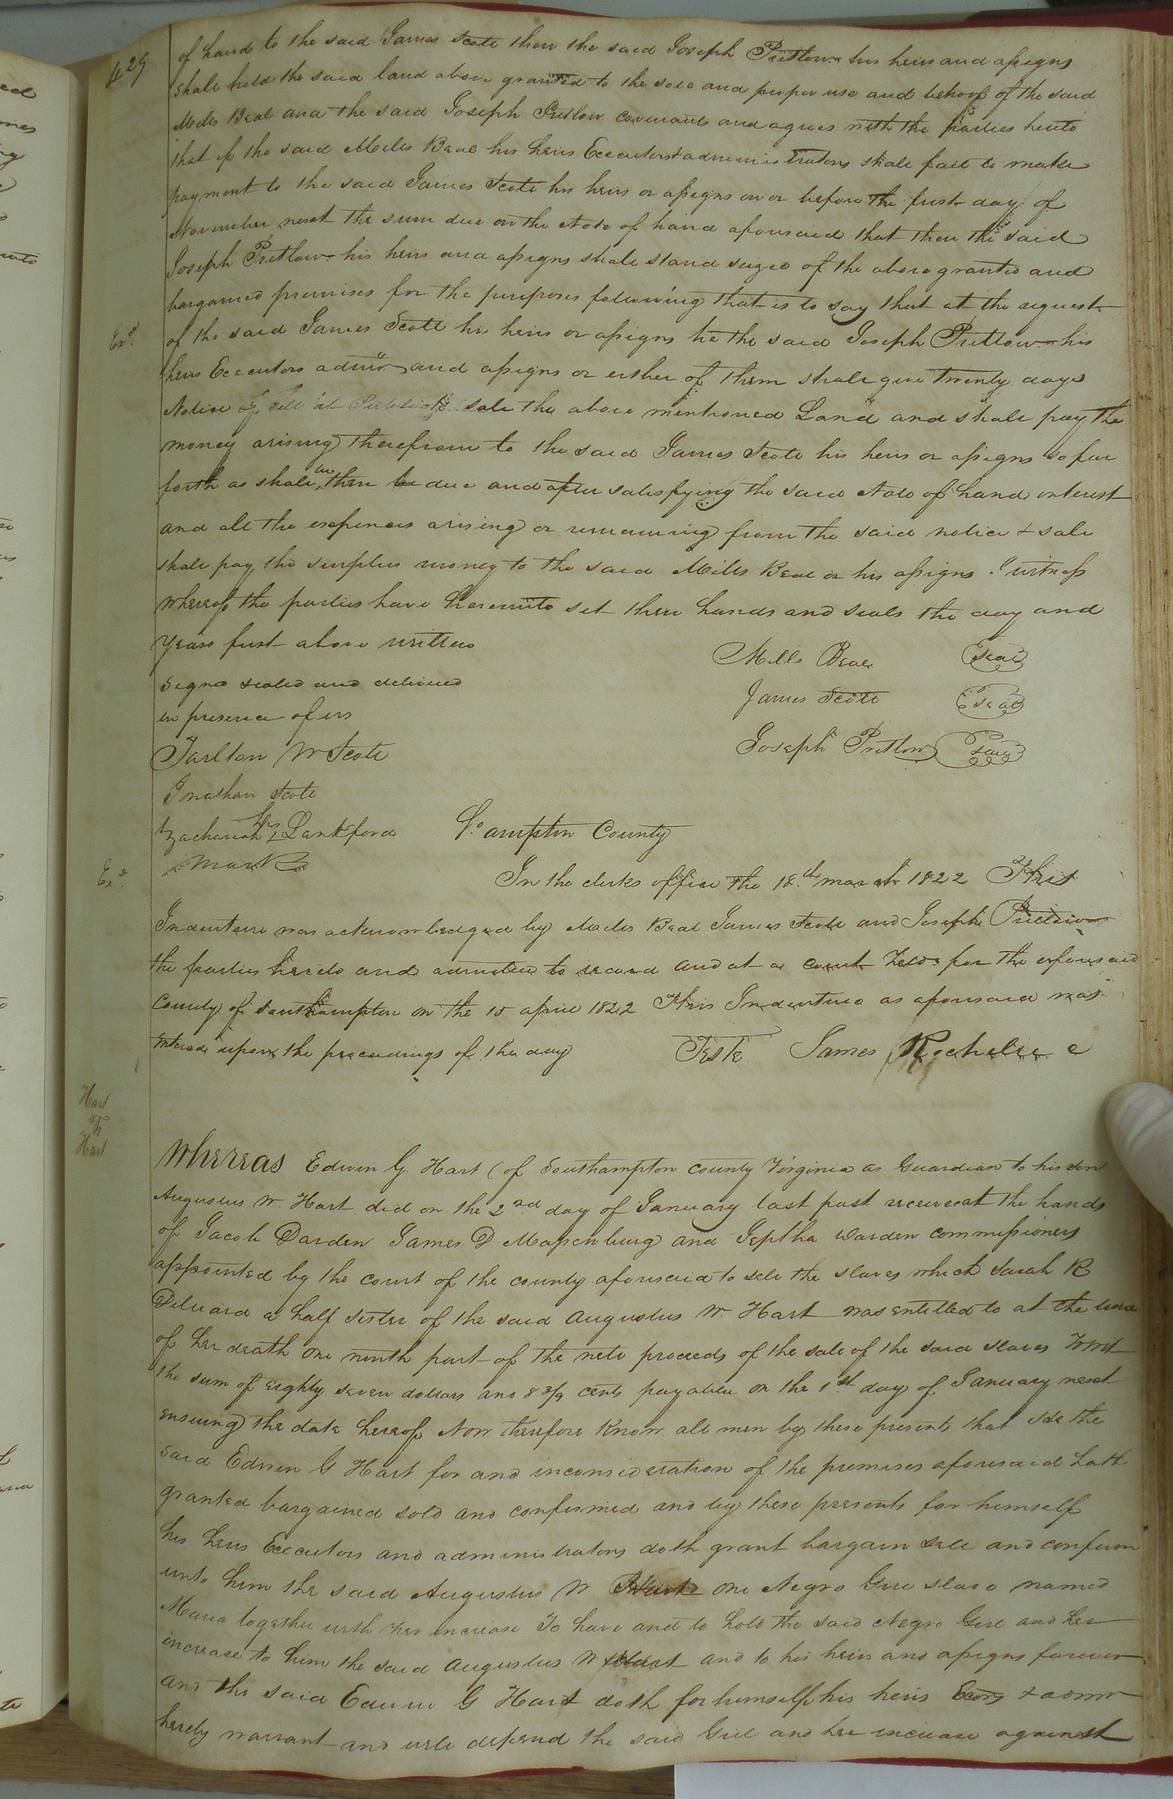 429
of hand to the said James Scott then the said Joseph Pretlow his heirs and assigns
shall hold the said land above granted to the sole and proper use and behoof of the said
Miles Beal and the said Joseph Pretlow covenants and agrees with the parties hereto
that if the said Miles Beal his heirs Executors & administrators shall fail to make
payment to the said James Scott his heirs or assigns on or before the first day of
November next the sum due on the Note of hand aforesaid that then the said
Joseph Pretlow his heirs and assigns shall stand seized of the above granted and
bargained premises for the purposes following that is to say that at the request
of the said James Scott his heirs or assigns he the said Joseph Pretlow his
heirs Executors admrs and assigns or either of them shall give twenty days
Notice & sell at Publick sale the above mentioned Land and shall pay the
money arising therefrom to the said James Scott his heirs or assigns so far
forth as shall then be due and after satisfying the said Note of hand interest
and all the expences arising or remaining from the said notice & sale
shall pay the surplus money to the said Mills Beal or his assigns. I witness
whereof the parties have hereunto set their hands and seals the day and
years first above written
Mills Beal Seal
Signd sealed and delivered
James Scott Seal
in presence of us
Joseph Pretlow Seal
Tarlton W Scott
Jonathan Scott
Zachariah his Lankford
mark
So. ampton County
In the clerks office the 18th march 1822 This
Indenture was acknowledged by Miles Beal James Scott and Joseph Pretlow
the parties hereto and admitted to record and at a court held for the aforesaid
County of Southampton on the 15 april 1822 This Indenture as aforesaid was
entered upon the proceedings of the day
Teste James Rochelle c
Exd
Exd
Hart
To
Hart
Whereas Edwin G. Hart (of Southampton county Virginia as Guardian to his son
Augustus W. Hart did on the 2nd day of January last past receive at the hands
of Jacob Darden James D Massenburg and Jeptha Darden commissioners
appointed by the court of the county aforesaid to sell the slaves which Sarah R
a half sister of the said Augustus W. Hart was entitled to at the time
of her death one ninth part of the nett proceeds of the sale of the said slaves towit
the sum of eighty seven dollars and 8 8/9 cents payable on the 1st day of January next
ensuing the date hereof Now therefore Know all men by these presents that the
said Edwin G Hart for and in consideration of the premises aforesaid hath
granted bargained sold and confirmed and by these presents for himself
his heirs Executors and administrators doth grant bargain sell and confirm
unto him the said Augustus W Hart one Negro Girl slave named
Maria together with her increase To have and to hold the said Negro Girl and her
increase to him the said Augustus W Hart and to his heirs and assigns forever
and the said Edwin G Hart doth for himself his heirs Exors & admr
hereby warrant and will defend the said Girl and her increase against